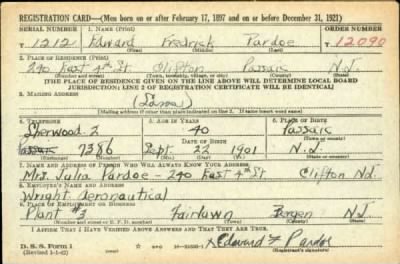 REGISTRATION CARD—(Men born on or after February 17, 1897 and on or before December 31, 1921)
SERIAL NUMBER 1. NAME (Print) ORDER NUMBER
T 1212 Edward Fredrick Pardoe T 12090
(First) (Middle) (Last)
2. PLACE OF RESIDENCE (Print)
290 East 4th St Clifton Passaic N.J.
(Number and street) (Town, township, village, or city) (County) (State)
[THE PLACE OF RESIDENCE GIVEN ON THE LINE ABOVE WILL DETERMINE LOCAL BOARD
JURISDICTION; LINE 2 OF REGISTRATION CERTIFICATE WILL BE IDENTICAL]
3. MAILING ADDRESS
(Same)
[Mailing address if other than place indicated on line 2. If same insert word same]
4. TELEPHONE 5. AGE IN YEARS 6. PLACE OF BIRTH
Sherwood-2 40 Passaic
DATE OF BIRTH (Town or county)
Passaic 7386 Sept. 22 1901 N.J.
(Exchange) (Number) (Mo.) (Day) (Yr.) (State or country)
7. NAME AND ADDRESS OF PERSON WHO WILL ALWAYS KNOW YOUR ADDRESS
Mrs. Julia Pardoe - 290 East 4th St Clifton N.J.
8. EMPLOYER'S NAME AND ADDRESS
Wright Aeronautical
9. PLACE OF EMPLOYMENT OR BUSINESS
Plant #3 Fairlawn Bergen N.J.
(Number and street or R. F. D. number) (Town) (County) (State)
I AFFIRM THAT I HAVE VERIFIED ABOVE ANSWERS AND THAT THEY ARE TRUE.
D. S. S. Form 1
(Revised 1-1-42)
Edward F Pardoe
(Registrant's signature)